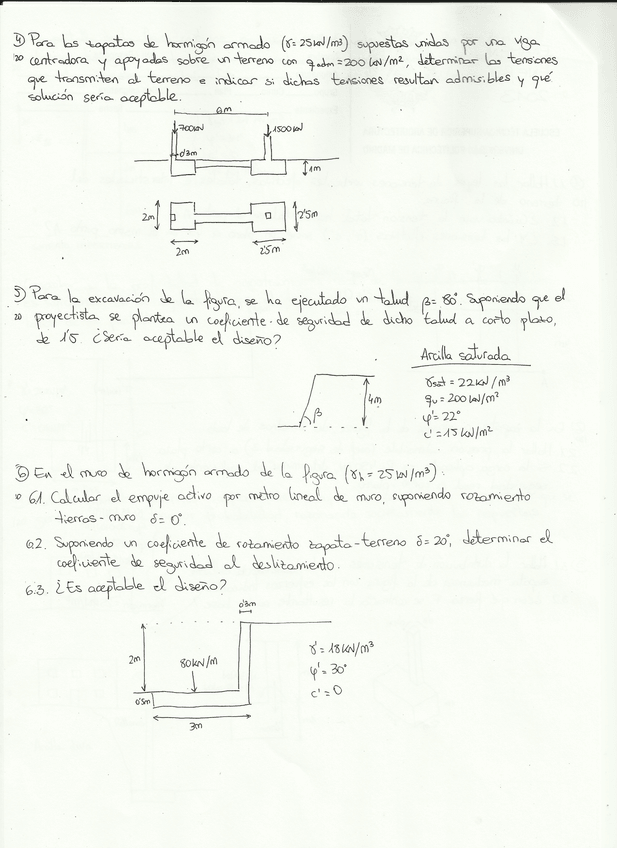 4) Para las zapatas de hormigón armado (γ=25kN/m³) supuestas unidas por una viga
20 centradora y apoyadas sobre un terreno con q adm=200 kN/m², determinar las tensiones
que transmiten al terreno e indicar si dichas tensiones resultan admisibles y qué
solución sería aceptable.
6m
700kN
1500kN
0'3m
1m
2m
2'5m
2m
2'5m
5) Para la excavación de la figura, se ha ejecutado un talud β=80°. Suponiendo que el
20 proyectista se plantea un coeficiente de seguridad de dicho talud a corto plazo,
de 1'5 ¿Sería aceptable el diseño?
Arcilla saturada
γsat = 22kN/m³
qu = 200kN/m²
φ' = 22°
c' = 15kN/m²
4m
β
6) En el muro de hormigón armado de la figura (γh = 25kN/m³):
10 6.1. Calcular el empuje activo por metro lineal de muro, suponiendo rozamiento
tierras-muro δ=0°.
6.2. Suponiendo un coeficiente de rozamiento zapata-terreno δ=20°, determinar el
coeficiente de seguridad al deslizamiento.
6.3. ¿Es aceptable el diseño?
0'3m
2m
80kN/m
0'5m
3m
γ' = 18kN/m³
φ' = 30°
c' = 0